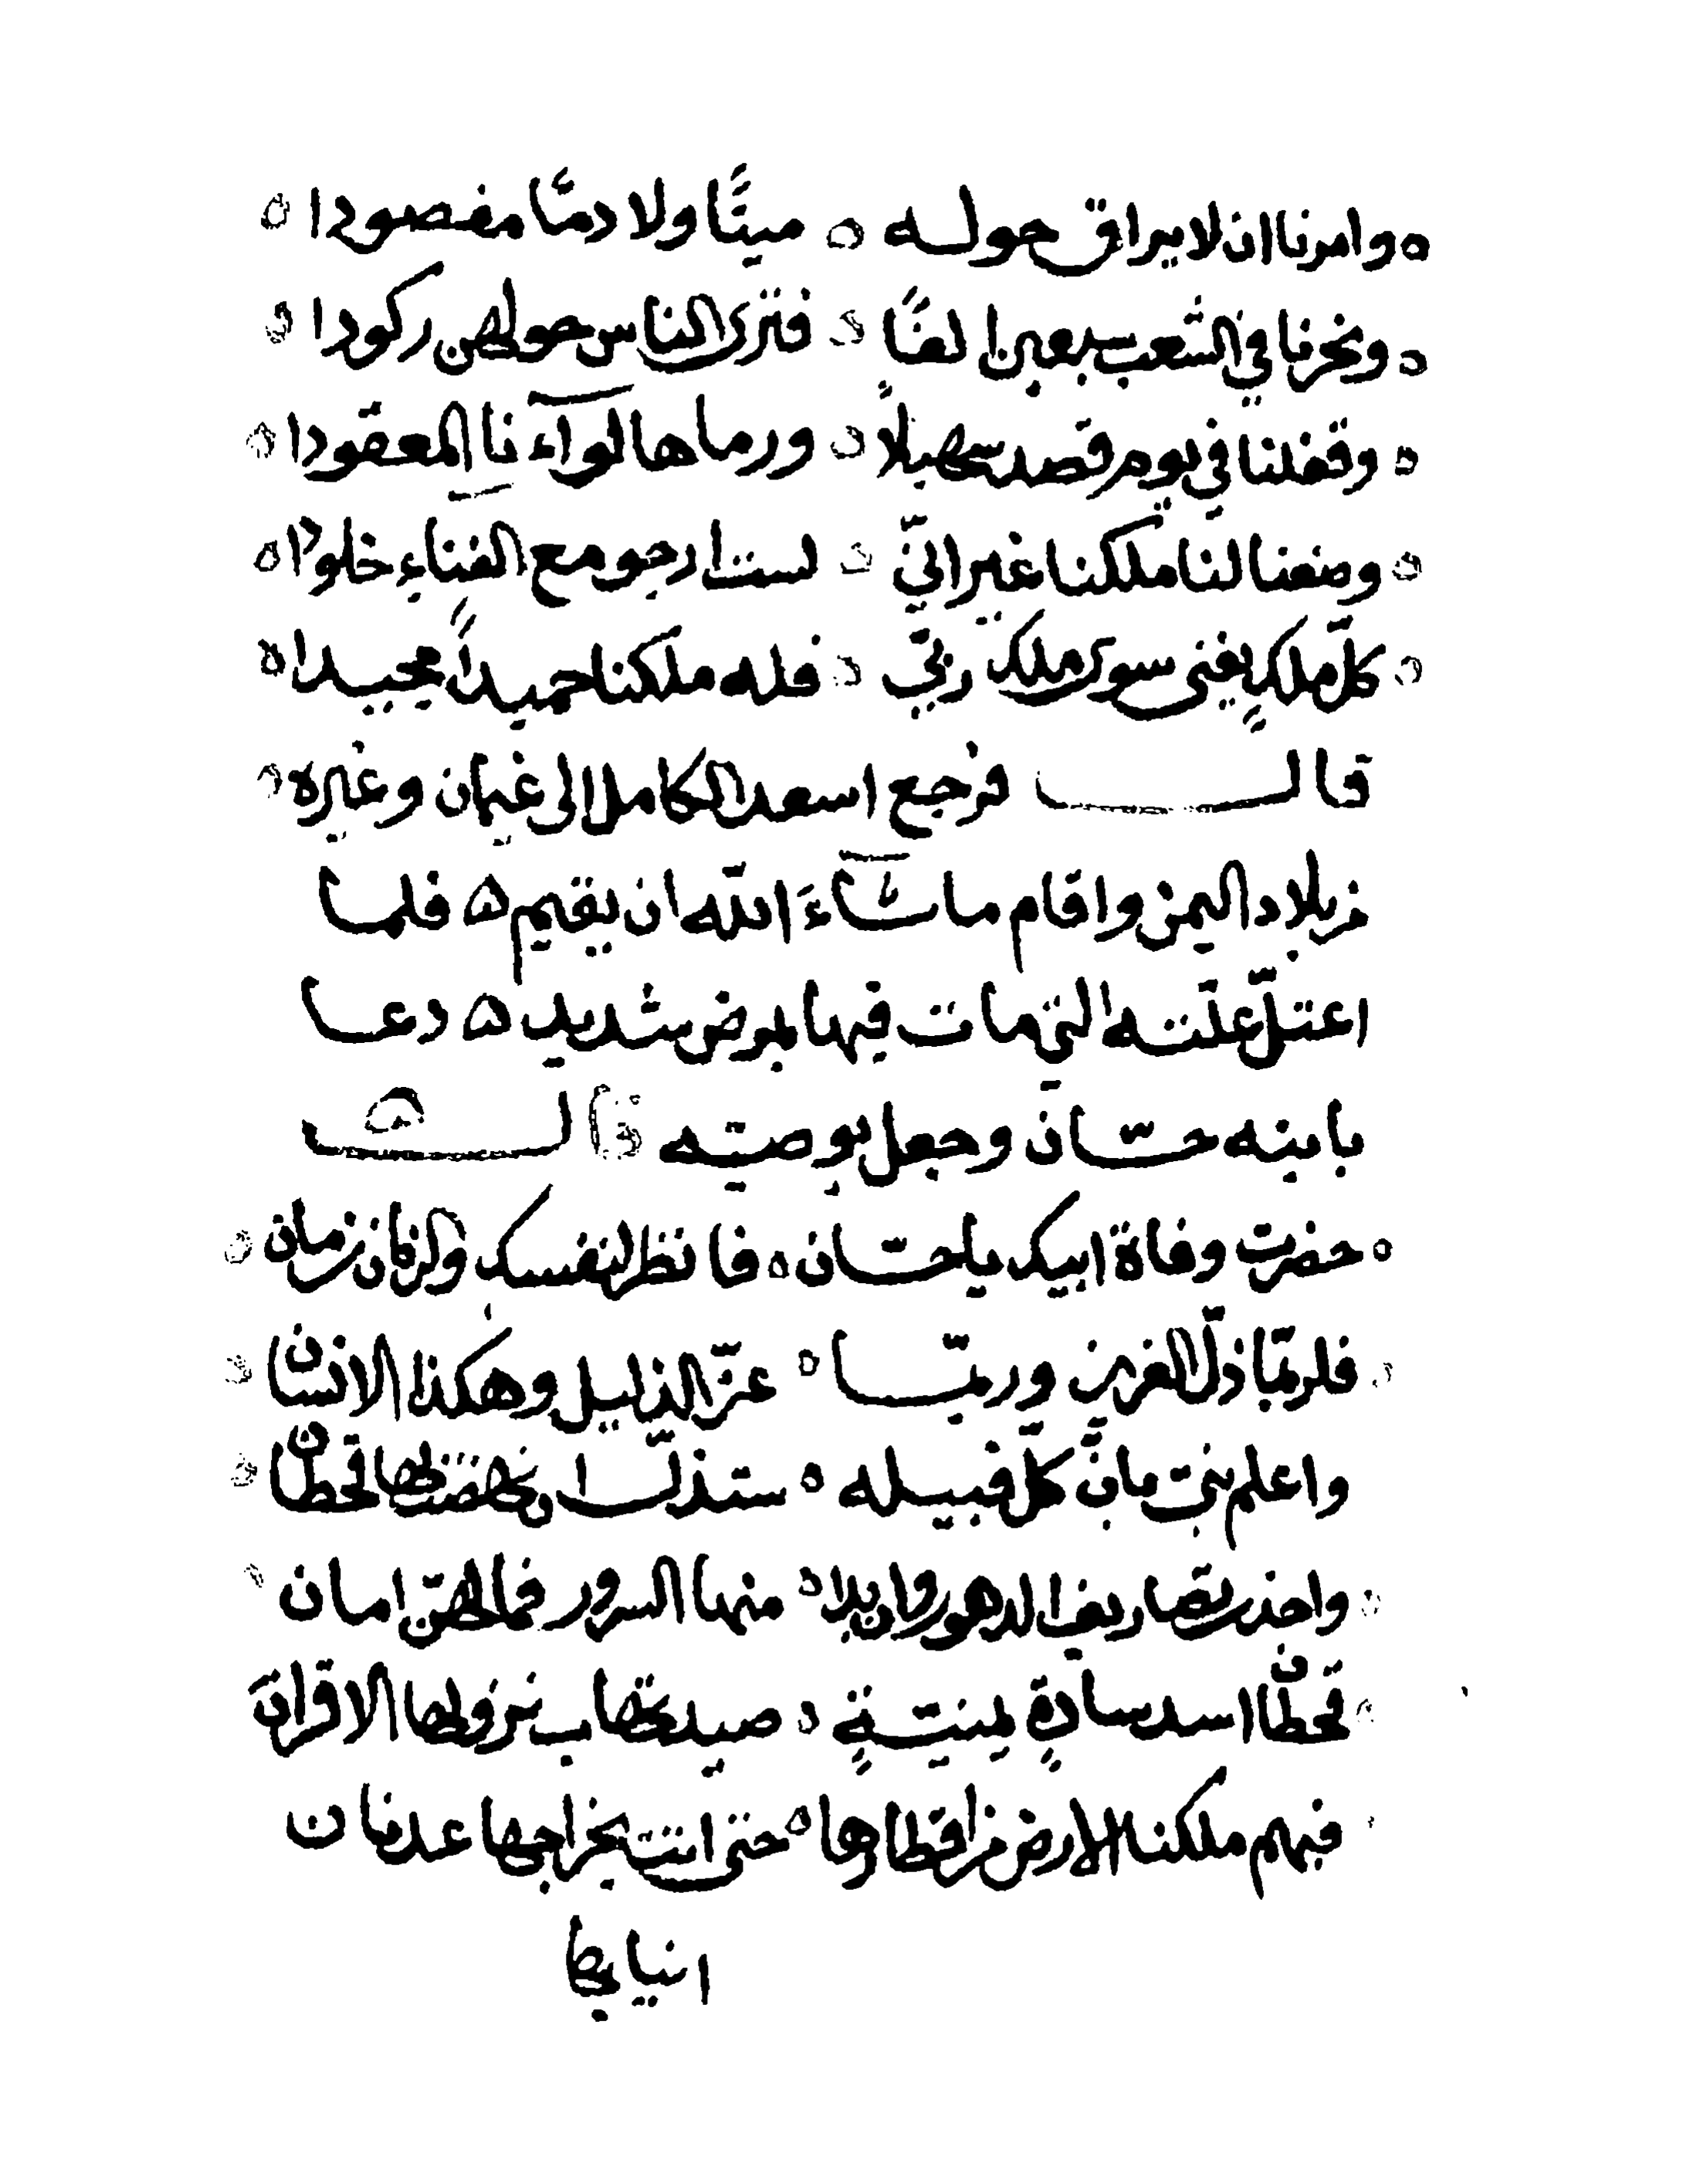 وامرنا ان لا يراق حوله ه ميتًا ولا دمًا مفصودا
ونحرنا في الشعب سبعين الفًا ه فترى الناس حولهن ركودا
وقفلنا في يوم قصد سهيلاً ه ورماها لوآءنا المعقودا
وصفنا لنا ملكنا غير انّي ه لست ارجو مع الفناء خلودا
كلّ ملكٍ يفنى سوى ملك ربّي ه فله ملكنا حميداً مجيدا
قال فرجع اسعد الكامل الى غيمان وغيره
من بلاد اليمن واقام ما شآءَ الله ان يقيم ه فلما
اعتلّ علّته التي مات فيها بمرض شديد ه دعا
بابنه حسّان وجعل يوصيه قال
حضرت وفاة ابيك يا حسّان ه فانظر لنفسك والزمان زمان
فلربّما ذلّ العزيز وربّما ه عزّ الذليل وهكذا الانسان
واعلم بنيّ بانّ كلّ قبيله ه ستذلّ ان نهضت لها قحطان
واحذر تصاريف الدهور وان بدا ه منها السرور فما لهنّ امان
قحطان اسد سادةٍ يمنيّةٍ ه صيد تهاب نزولها الاقران
فبهم ملكنا الارض من اقطارها ه حتى اتت بخراجها عدنان